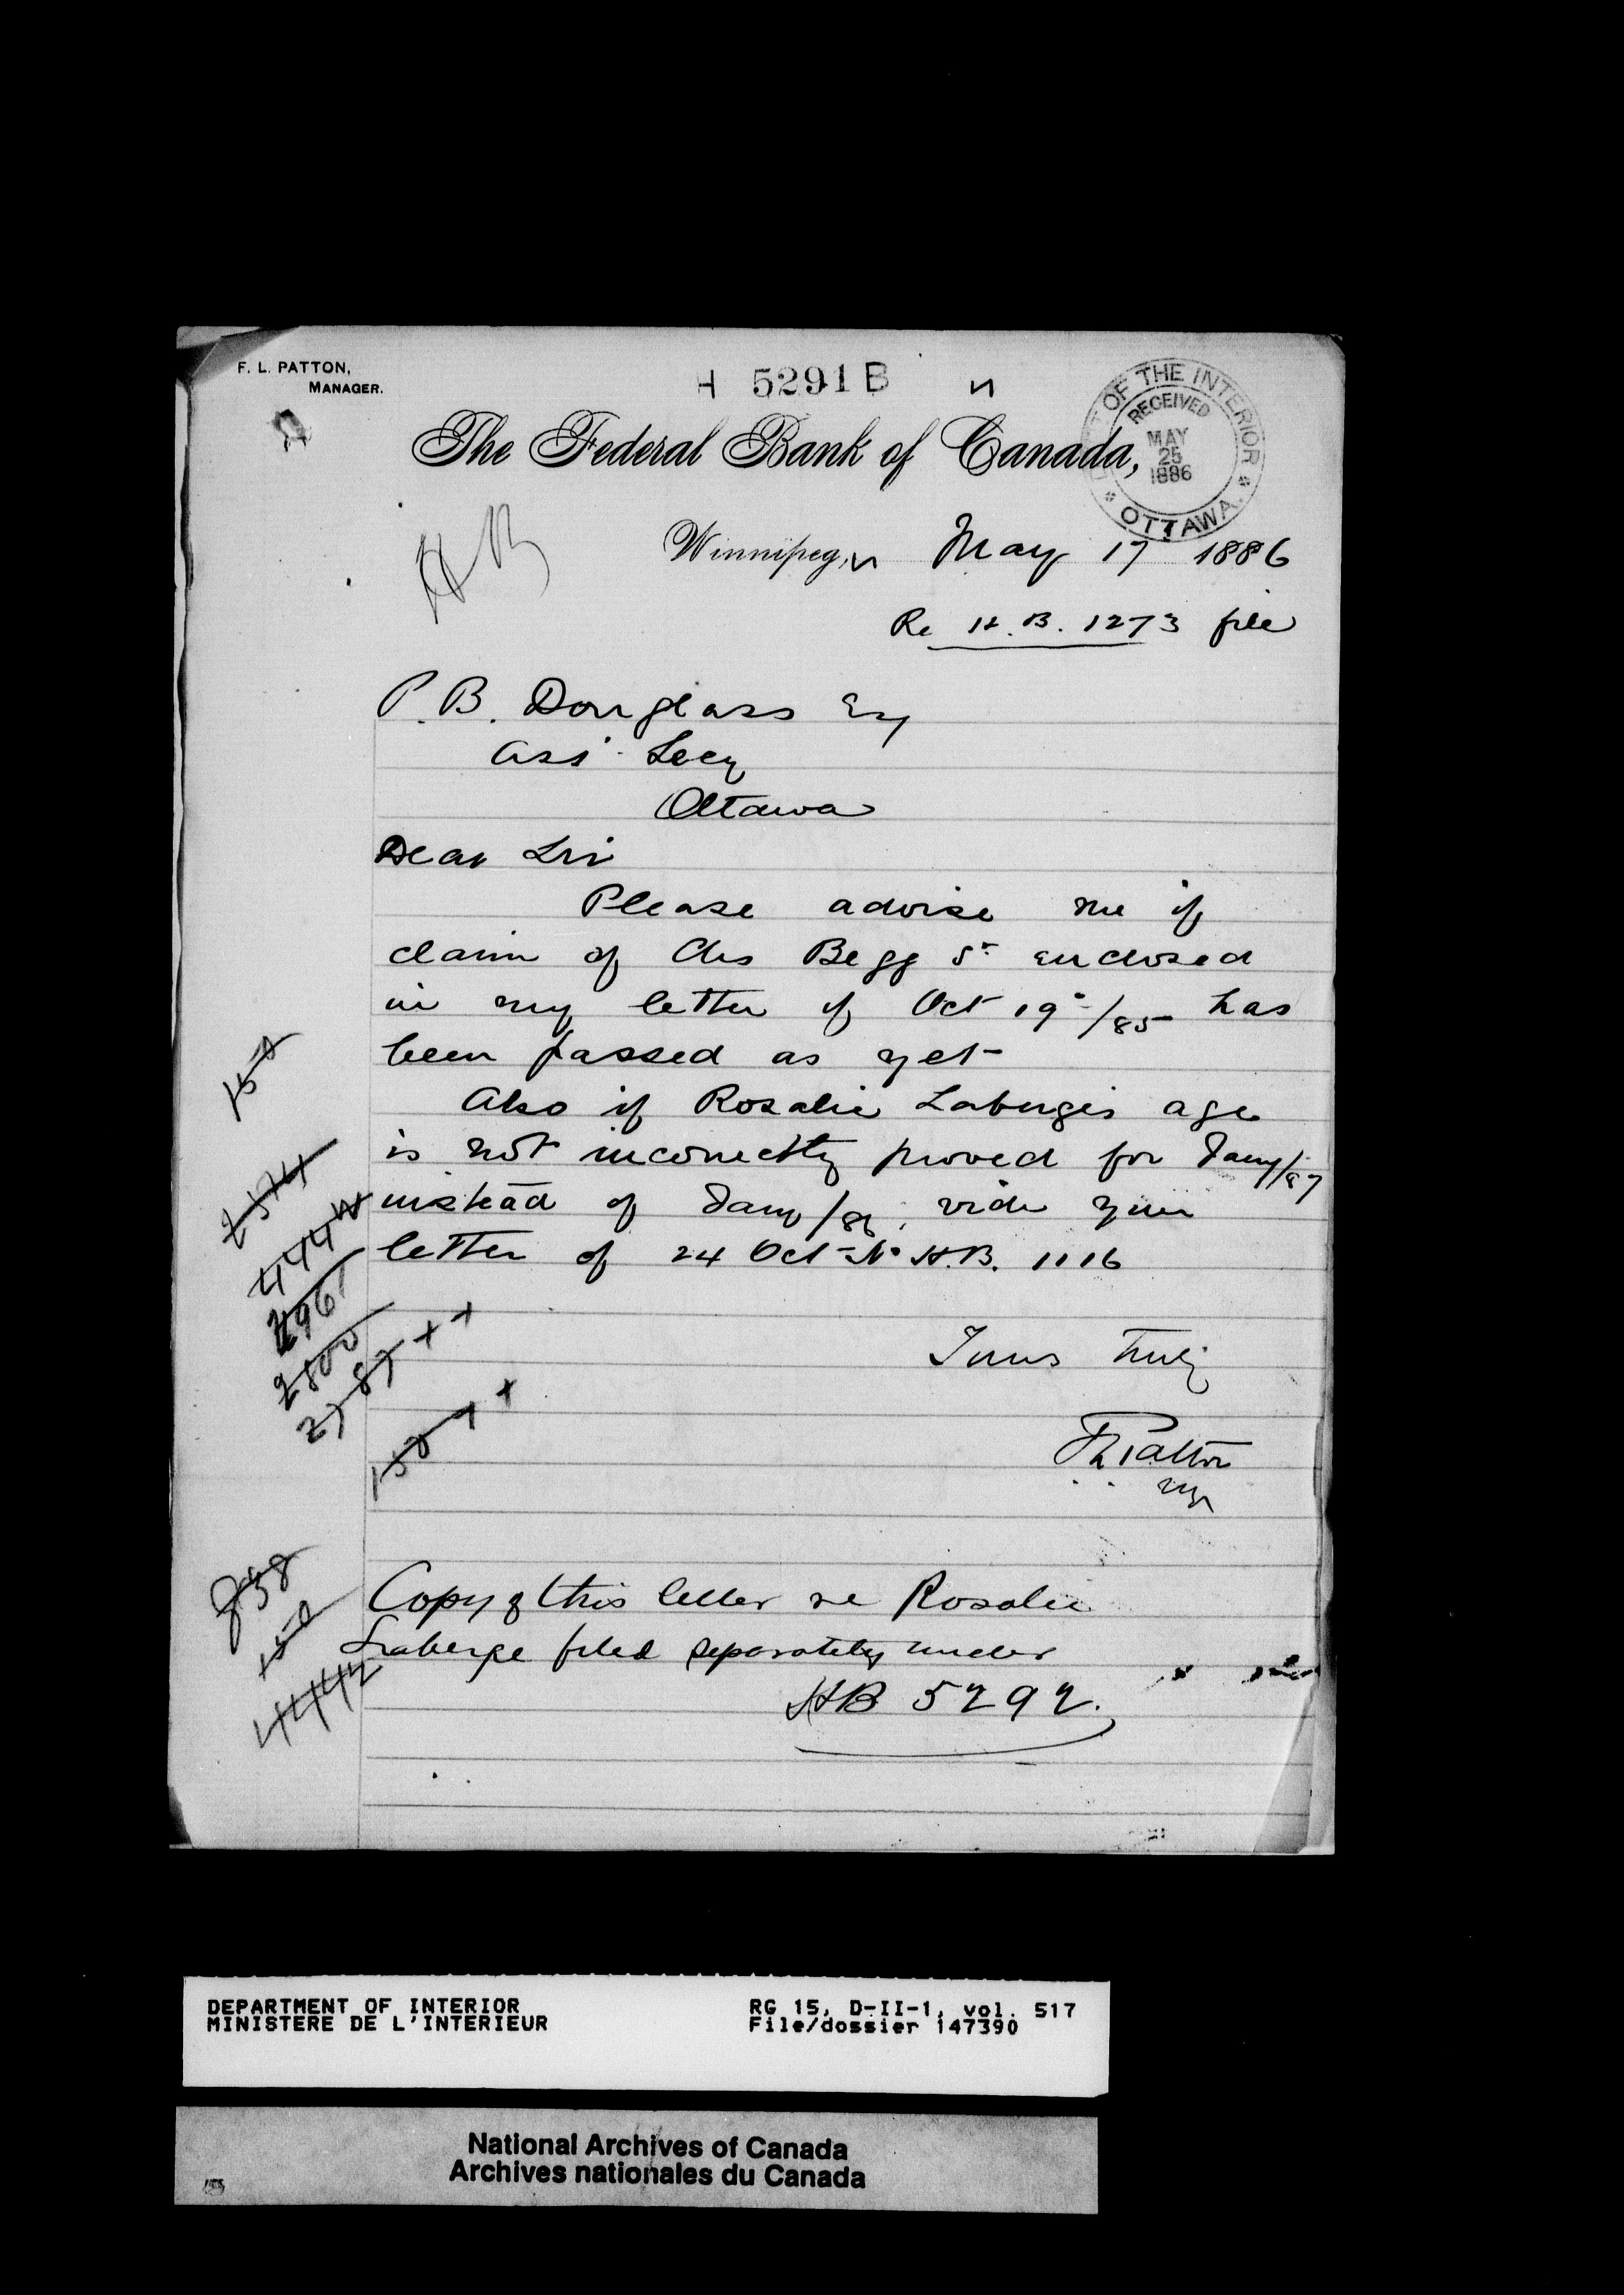 F. L. PATTON,
MANAGER.
H 5291 B
The Federal Bank of Canada,
DEPT OF THE INTERIOR
RECEIVED
MAY
25
1886
OTTAWA
HB
Winnipeg, May 17 1886
Re H.B. 1273 file
P. B. Douglass Esq
Ass Secy
Ottawa
Dear Sir
Please advise me if
claim of Chs Begg Sr enclosed
in my letter of Oct 19/85 has
been passed as yet
Also if Rosalie Laberges age
is not incorrectly proved for Jany/87
instead of Jany/86, vide your
letter of 24 Oct No H.B. 1116
Yours truly
F L Patton
Mgr
150
2574
4442
2961
2800
2787
150
Copy of this letter re Rosalie
Laberge filed separately under
HB 5292.
838
150
4442
DEPARTMENT OF INTERIOR
MINISTERE DE L'INTERIEUR
RG 15, D-II-1, vol. 517
File/dossier 147390
National Archives of Canada
Archives nationales du Canada